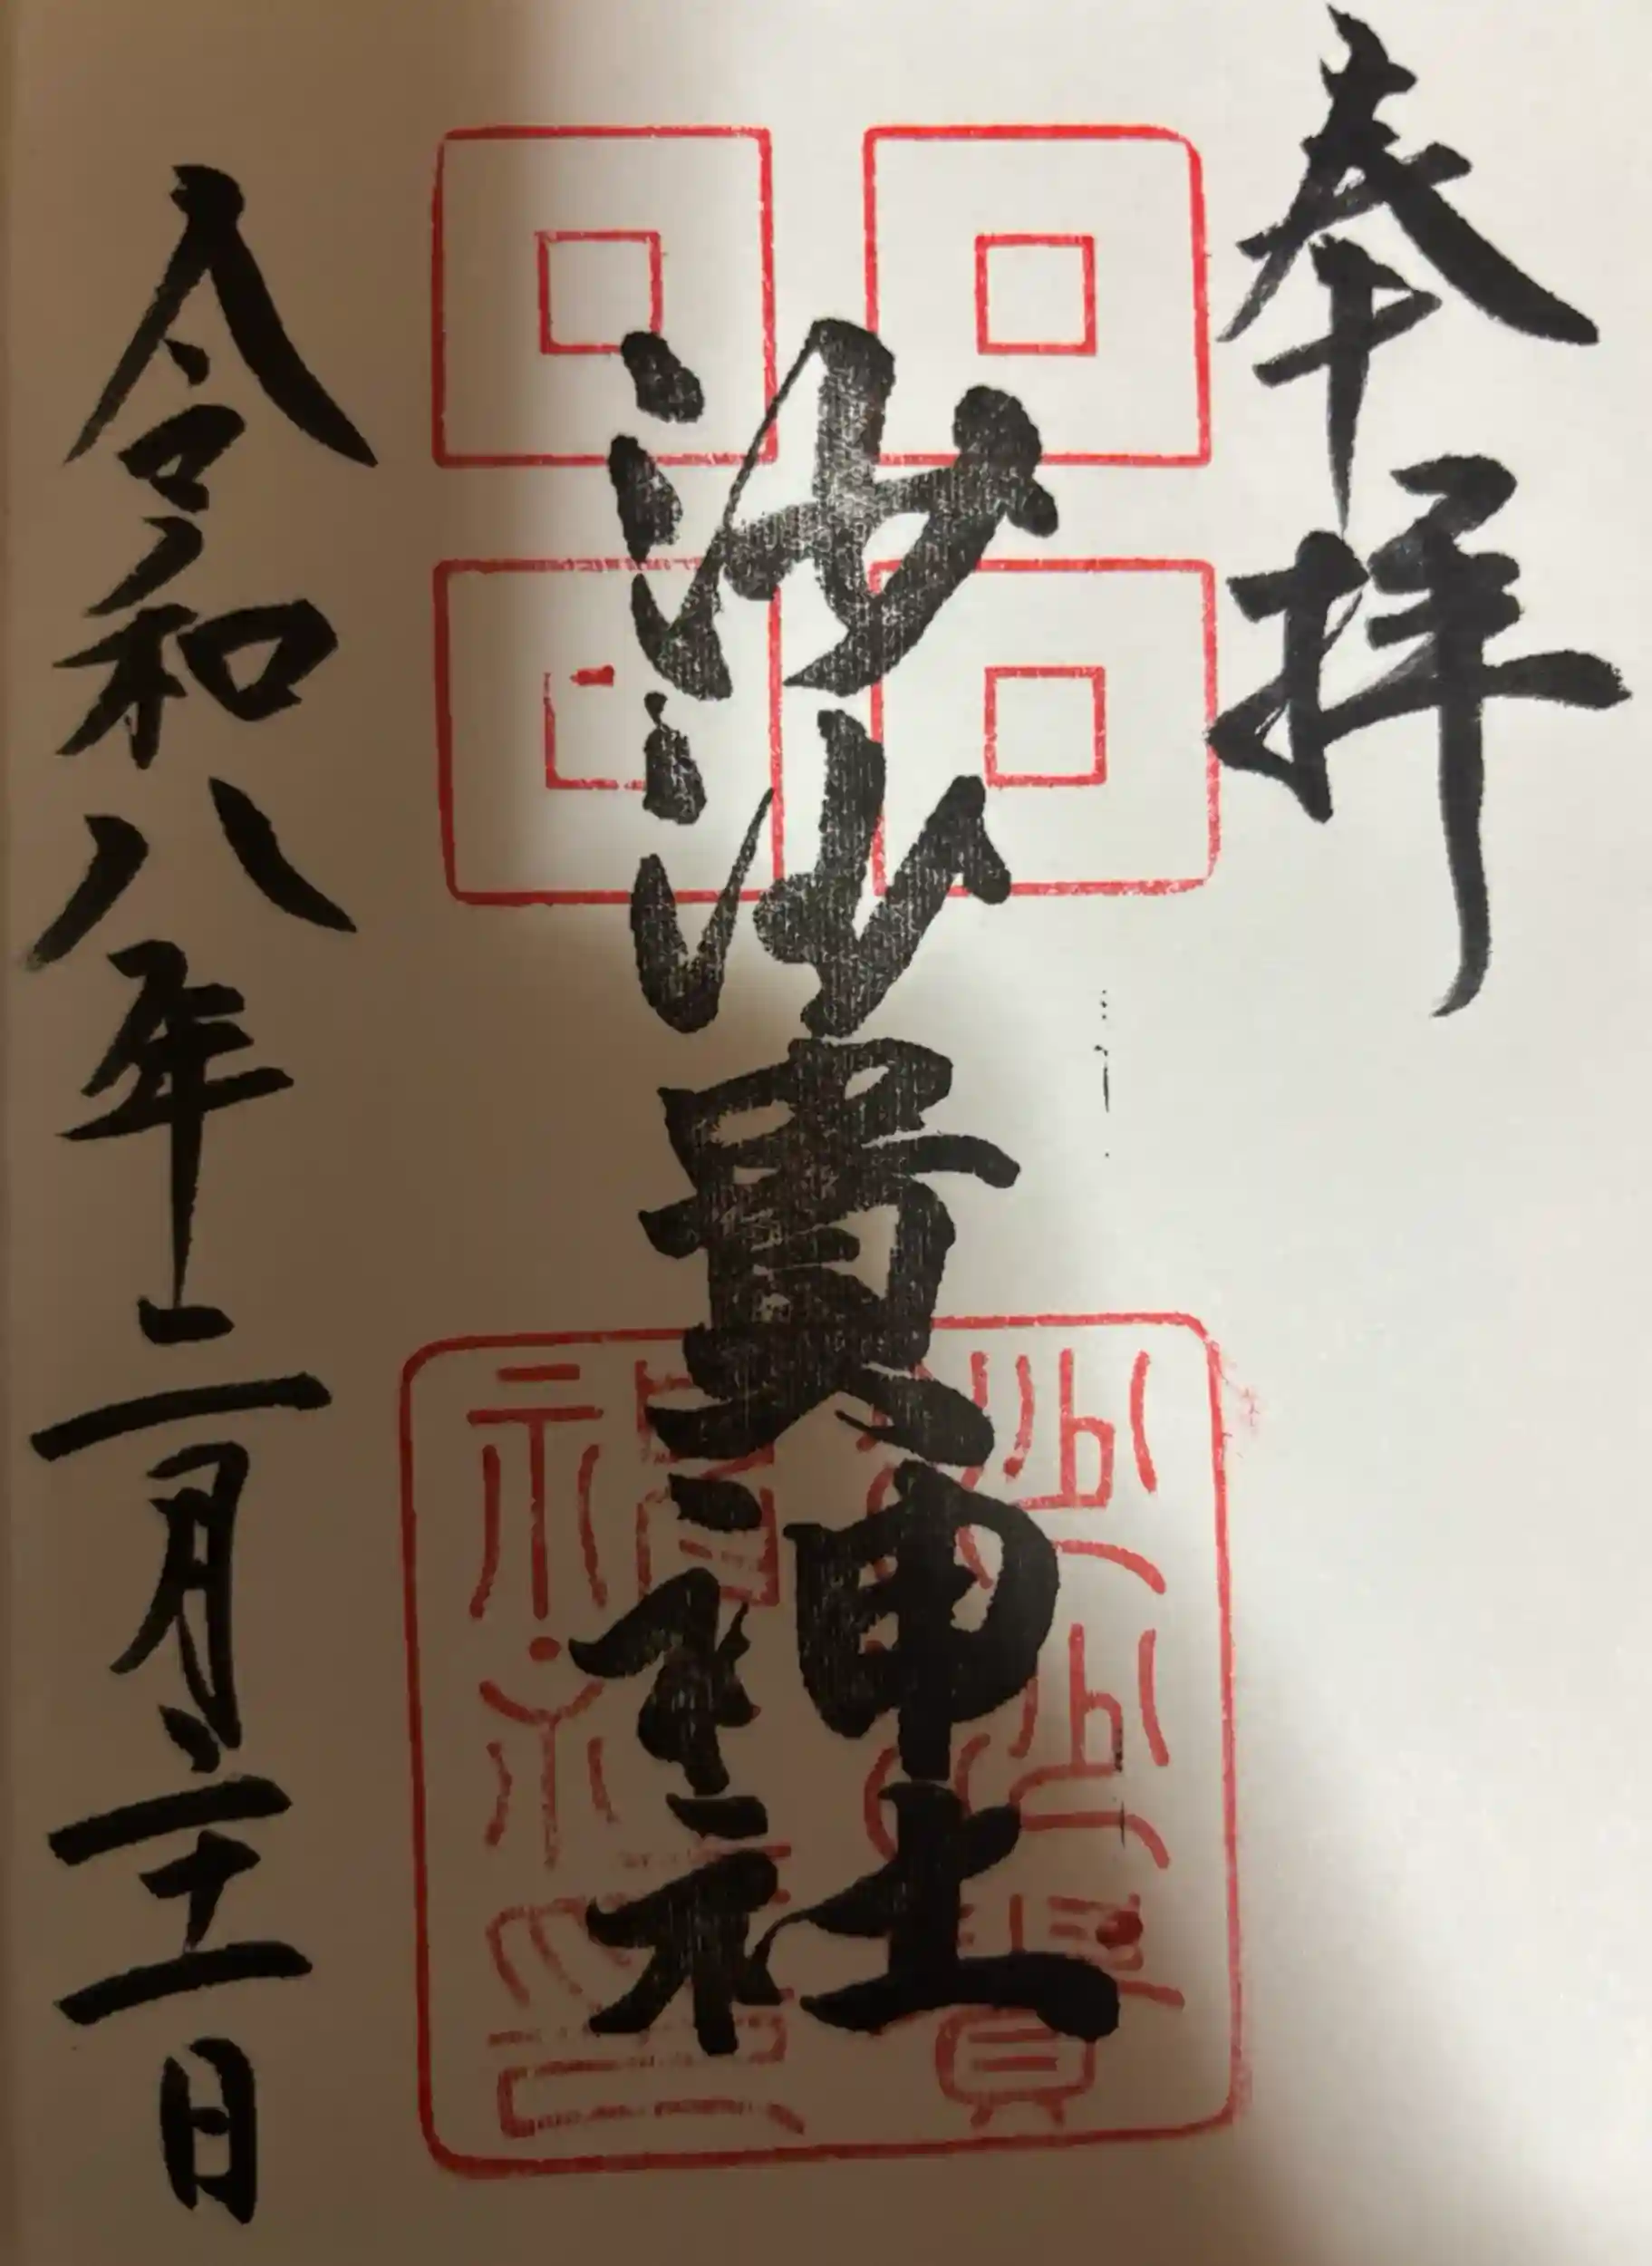 奉拝
沙沙貴神社
令和八年二月二十一日
沙沙貴
神社印